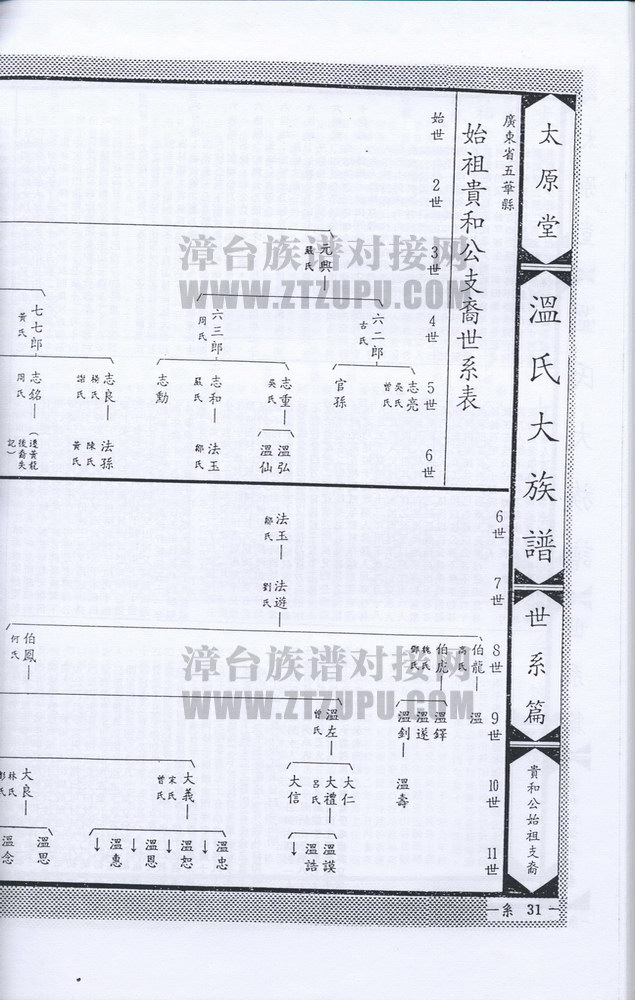 太原堂
溫氏大族譜
世系篇
貴和公始祖支裔
系 31
廣東省五華縣
始祖貴和公支裔世系表
始世
2世
3世
4世
5世
6世
元興
嚴氏
六二郎
古氏
六三郎
周氏
七七郎
黃氏
志亮
吳氏
曾氏
官孫
志重
吳氏
志和
嚴氏
志勳
志良
楊氏
謝氏
志銘
周氏
溫弘
溫仙
法玉
鄒氏
法孫
陳氏
黃氏
(遷黃龍
後裔失
記)
6世
7世
8世
9世
10世
11世
法玉
鄒氏
法遊
劉氏
伯龍
高氏
伯虎
魏氏
鄧氏
伯鳳
何氏
溫
溫鐸
溫遂
溫釗
溫左
曾氏
溫壽
大仁
大禮
呂氏
大信
大義
宋氏
曾氏
大良
林氏
彭氏
溫謨
溫誥
↓
溫忠
溫恕
↓
溫恩
↓
溫惠
↓
溫思
溫念
漳台族谱对接网
WWW.ZTZUPU.COM
漳台族谱对接网
WWW.ZTZUPU.COM